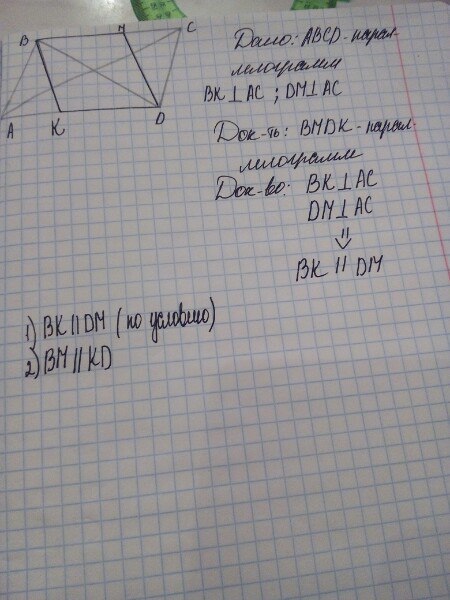 B
M
C
A
K
D
Дано: ABCD - парал-
лелограмм
BK ⊥ AC ; DM ⊥ AC
Док-ть: BMDK - парал-
лелограмм
Док-во: BK ⊥ AC
DM ⊥ AC
⇓
BK || DM
1) BK || DM (по условию)
2) BM || KD